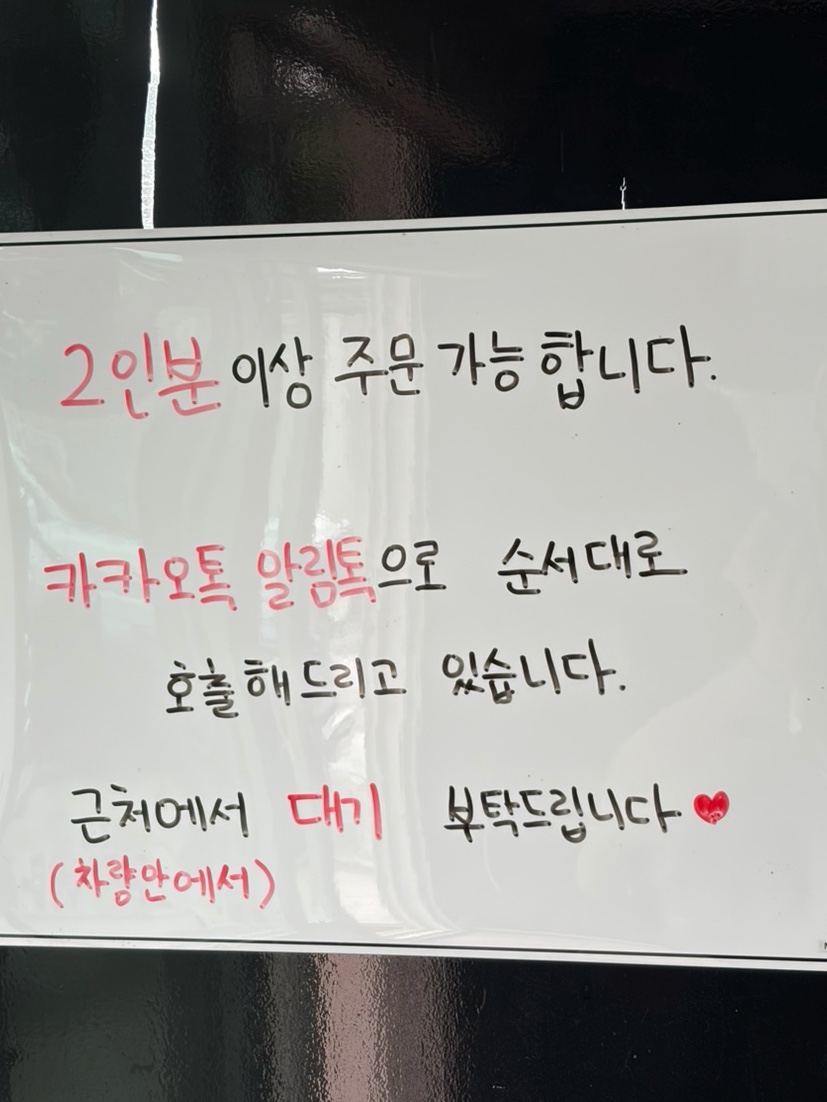 2인분 이상 주문 가능합니다.
카카오톡 알림톡으로 순서대로
호출해드리고 있습니다.
근처에서 대기 부탁드립니다 ♥
(차량안에서)